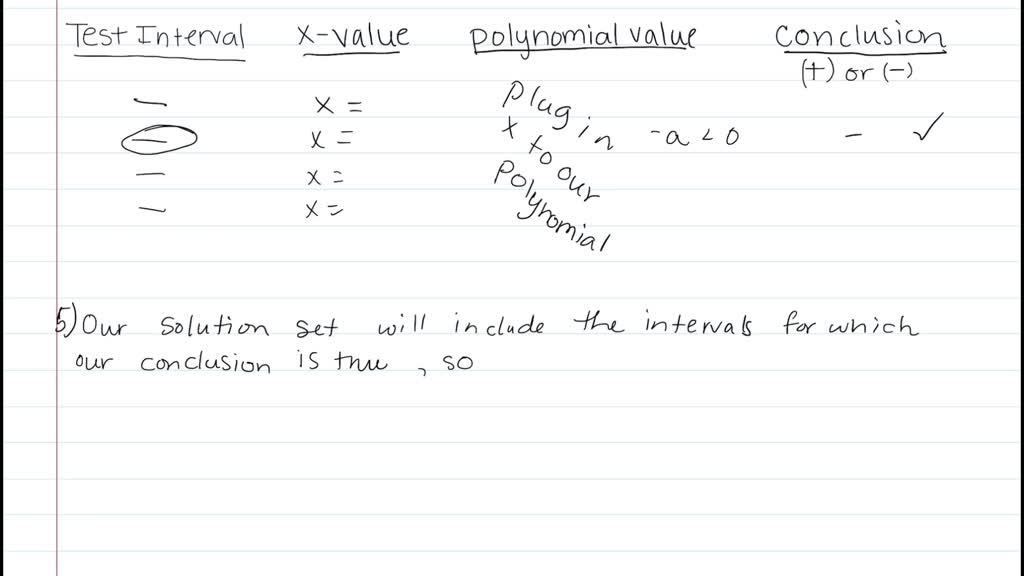 Test Interval x-value polynomial value Conclusion
(+) or (-)
— x = Plug in -a < 0 - ✓
— x = x to our
— x = Polynomial
— x =
5) Our solution set will include the intervals for which
our conclusion is true, so